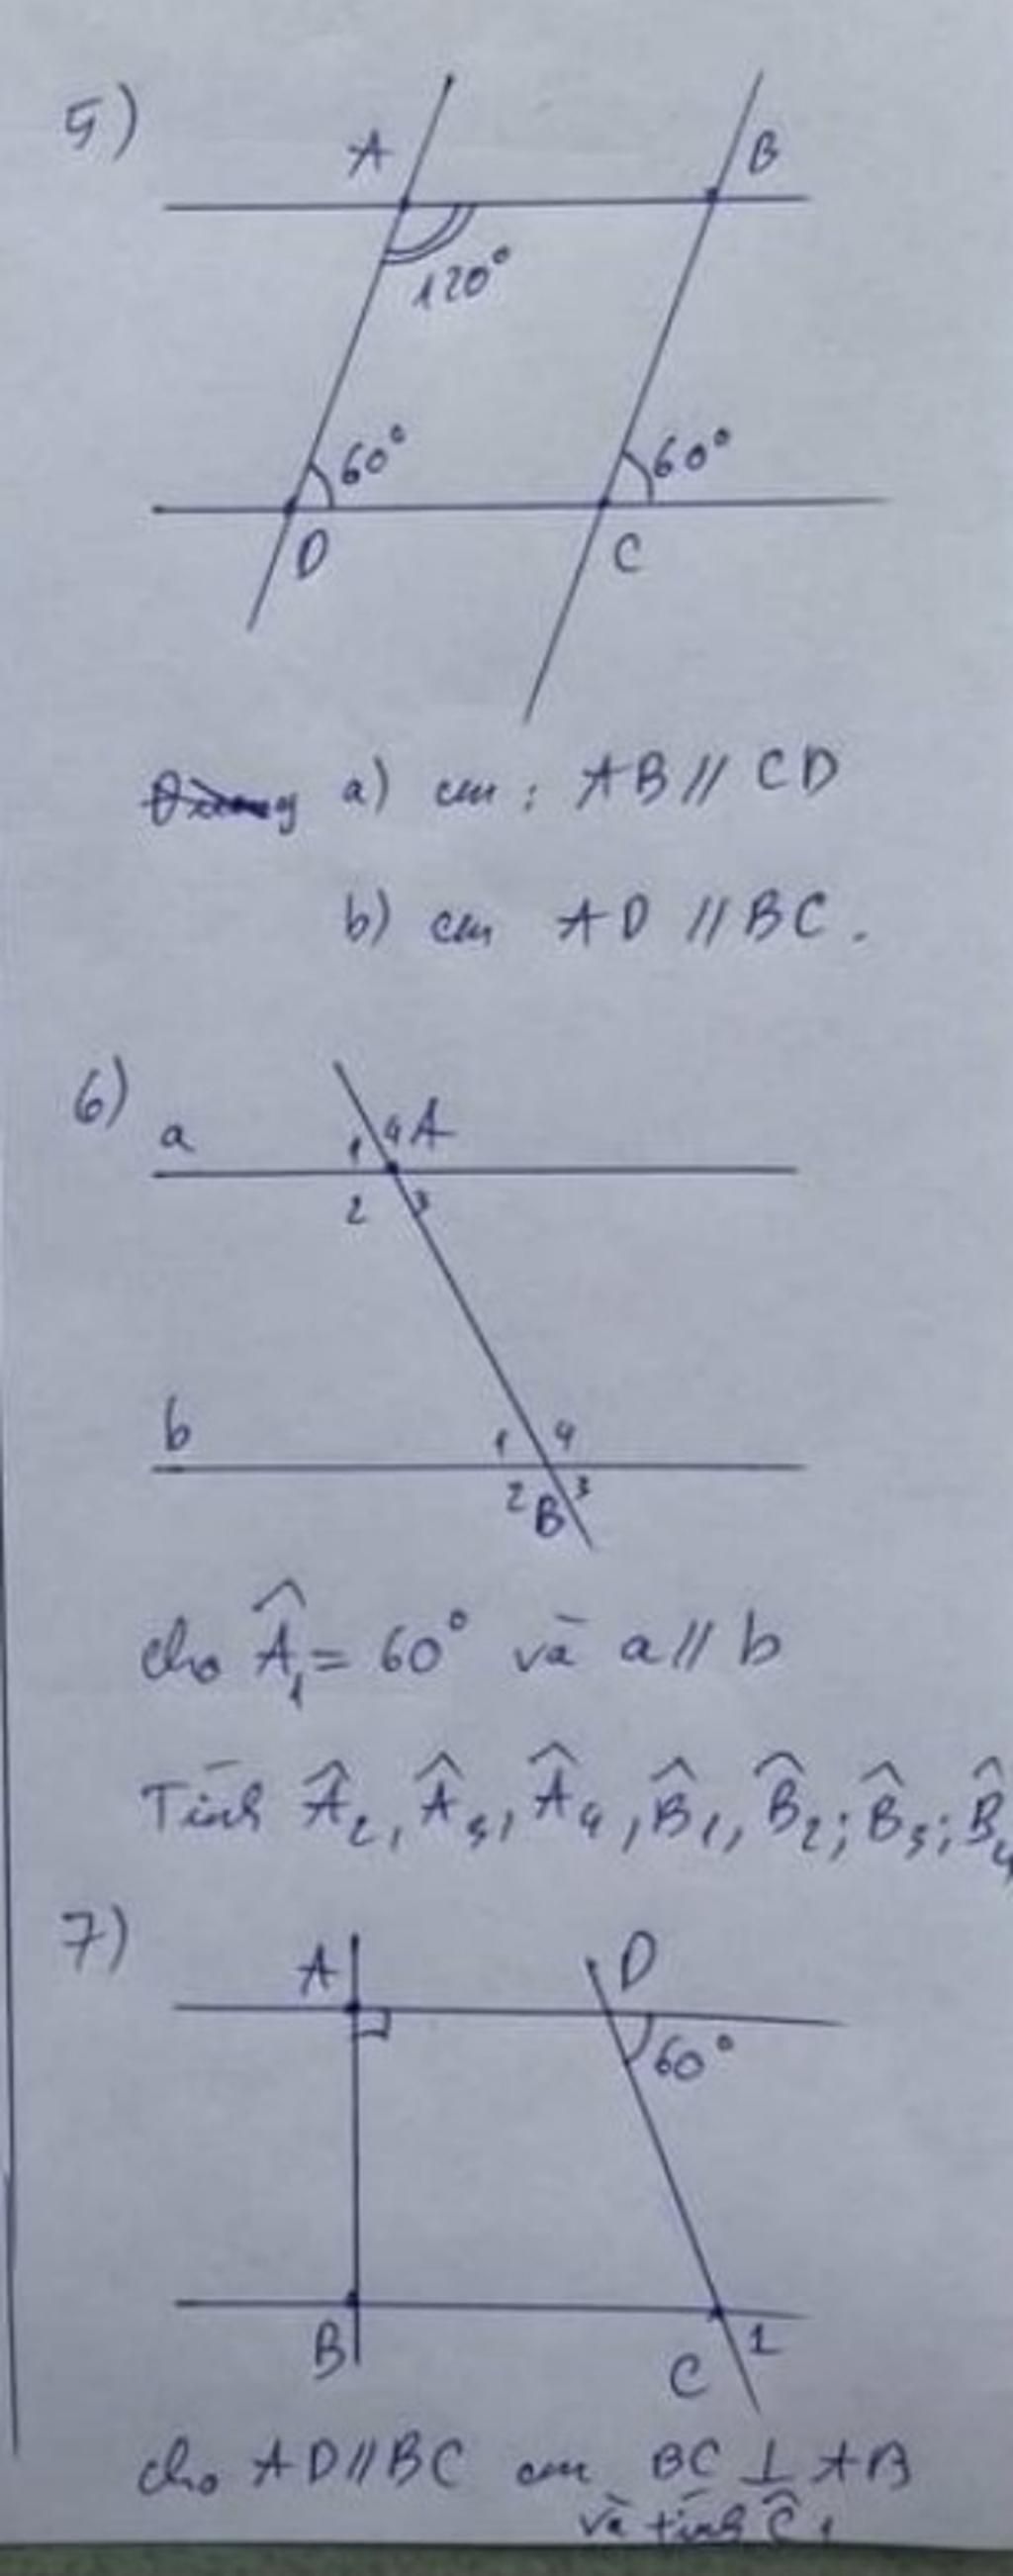 5)
A
B
120°
60°
60°
D
C
a) cm : AB // CD
b) cm AD // BC .
6)
a
1
4
A
2
3
b
1
4
2
B
3
cho Â₁ = 60° và a // b
Tính Â₂, Â₃, Â₄, B̂₁, B̂₂; B̂₃; B̂₄
7)
A
D
60°
B
C
1
cho AD // BC cm BC ⊥ AB
và tính Ĉ₁